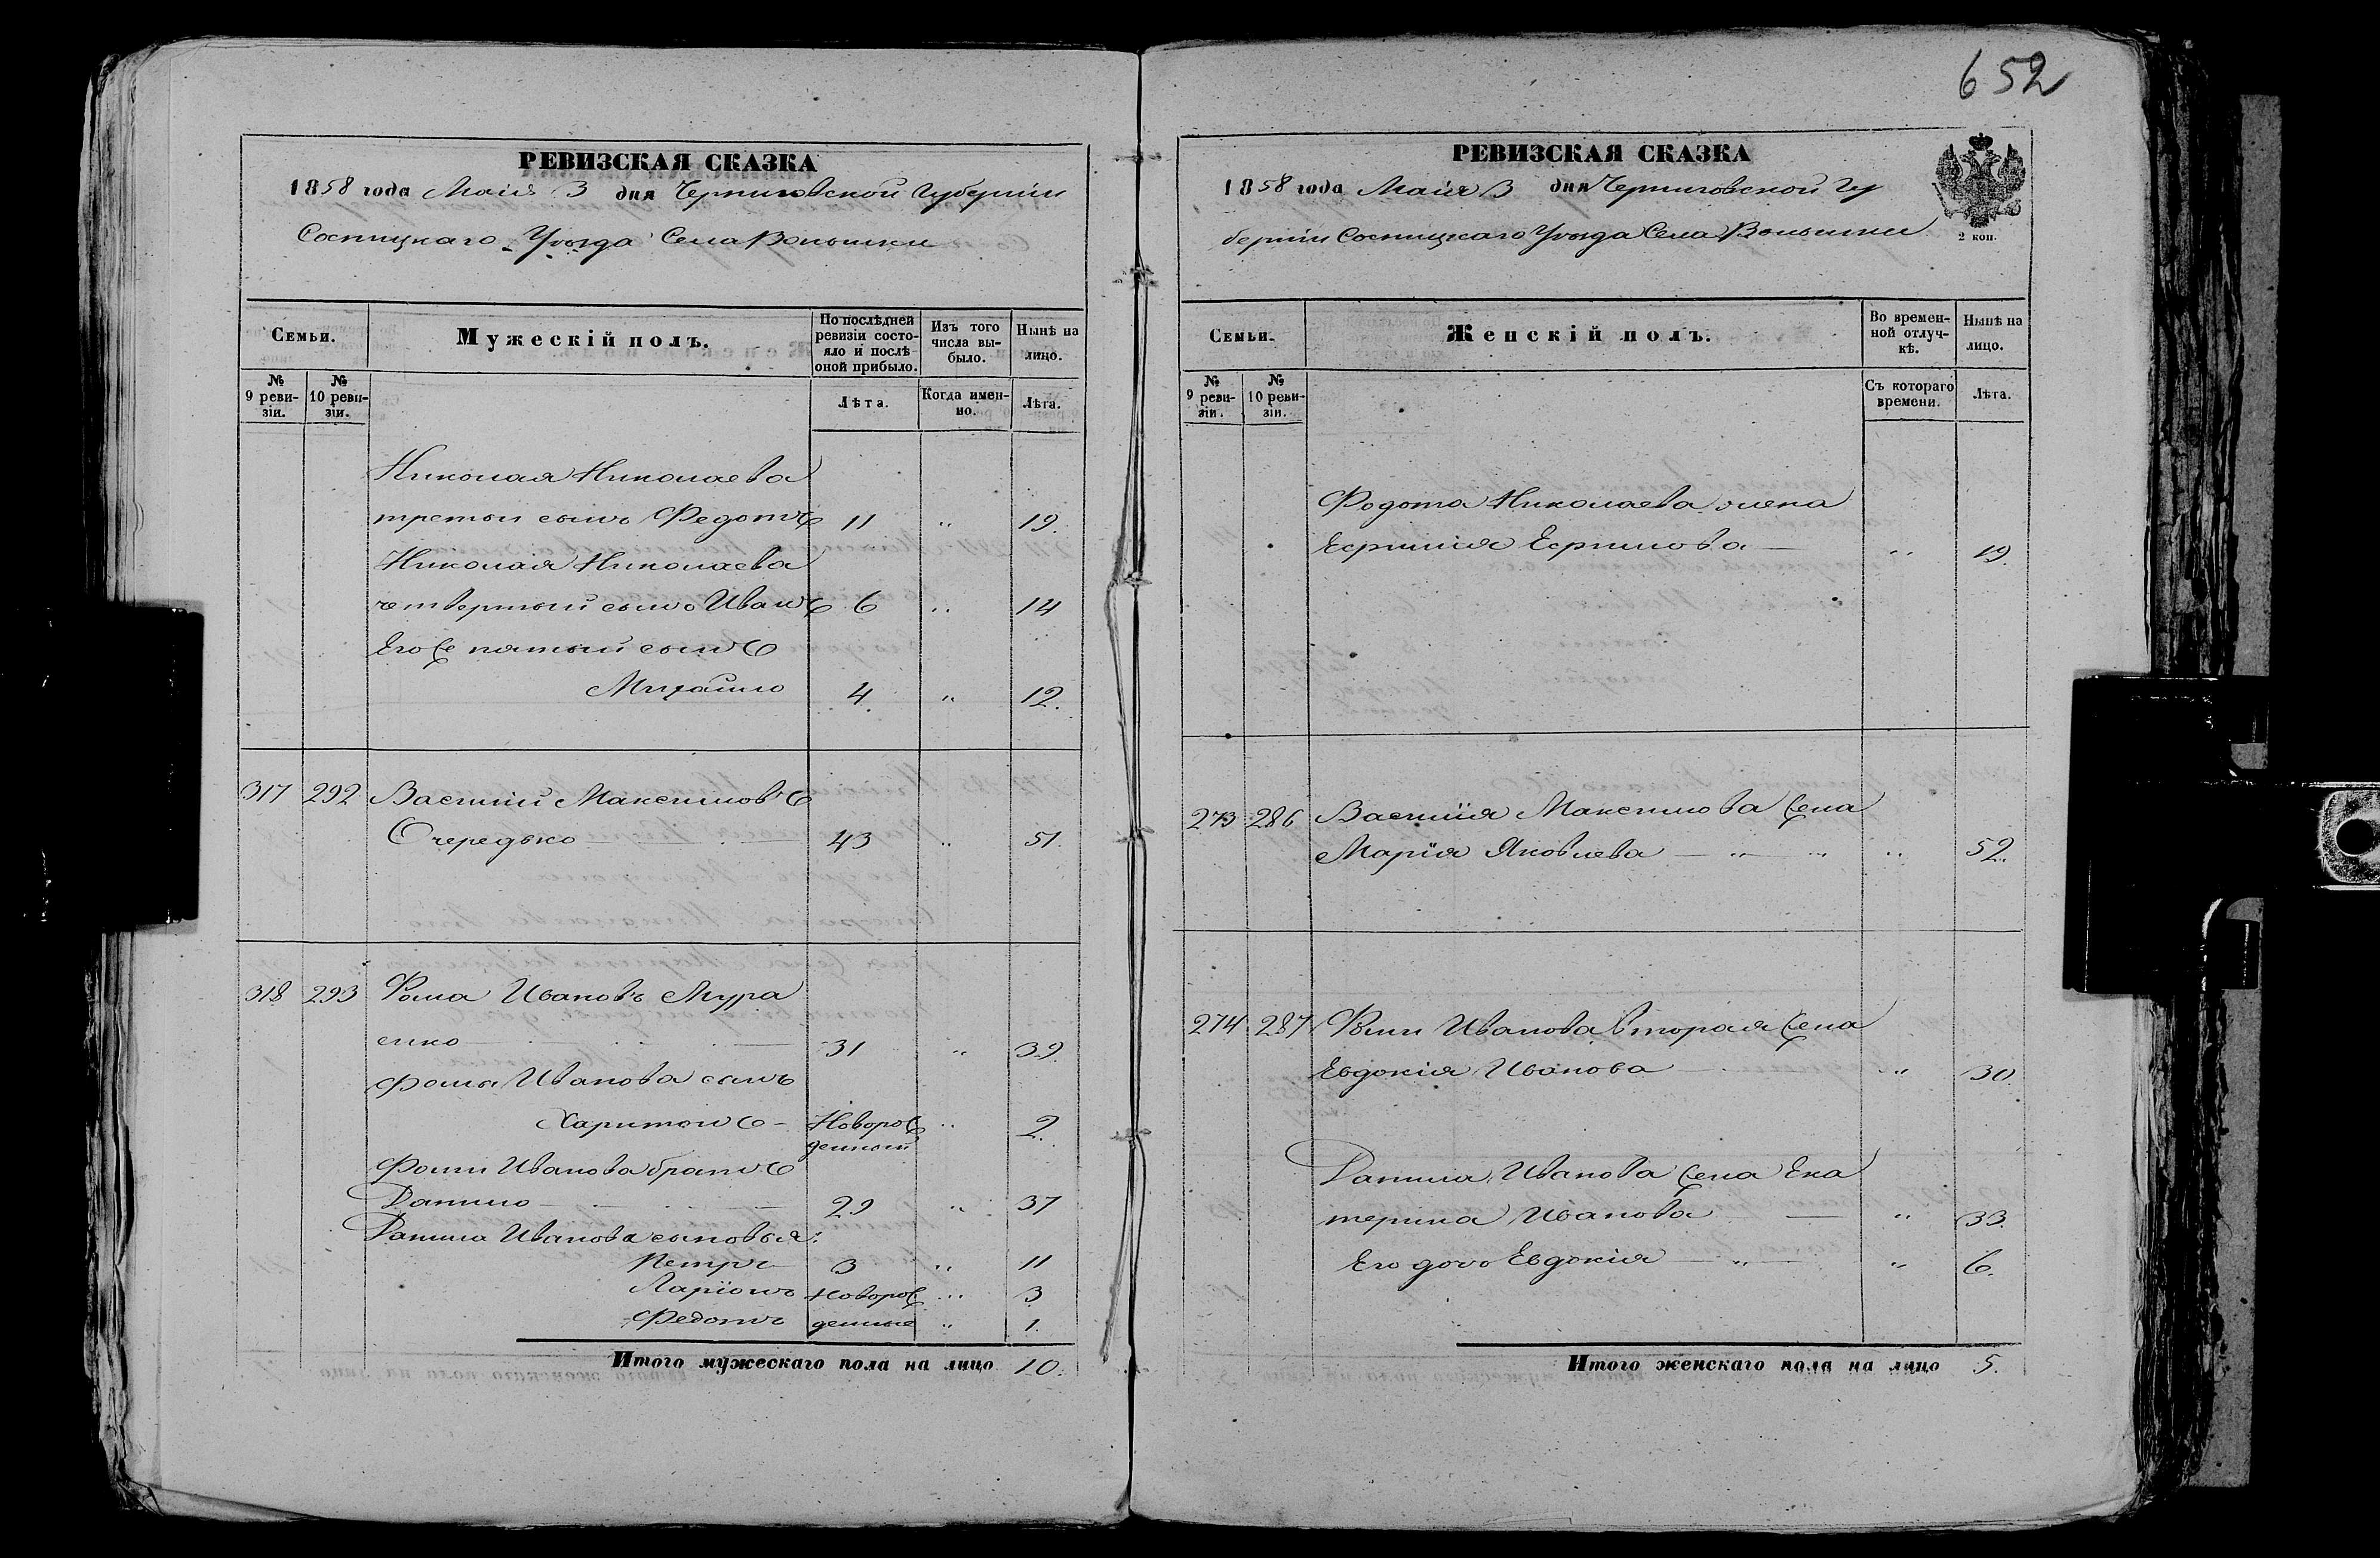 652
РЕВИЗСКАЯ СКАЗКА
1858 года Маія 3 дня Черниговской Губерніи
Сосницкаго Уѣзда Села Волынки
Семьи.
Мужескій полъ.
По послѣдней
ревизіи состо-
яло и послѣ
оной прибыло.
Изъ того
числа вы-
было.
Нынѣ на
лицо.
№
9 реви-
зіи.
№
10 реви-
зіи.
Лѣта.
Когда имен-
но.
Лѣта.
Николая Николаева
третій сынъ Федотъ 11 " 19.
Николая Николаева
четвертый сынъ Иванъ 6 " 14
Егоже пятый сынъ
Михайло 4 " 12.
317 292 Василій Максимовъ
Очередько 43 " 51.
318 293 Фома Ивановъ Мура
енко 31 " 39.
Фомы Иванова сынъ
Харитонъ Новорож " 2.
денный
Фомы Иванова братъ
Данило 29 " 37
Данила Иванова сыновья:
Петръ 3 " 11
Ларіонъ Новорож " 3
Федотъ денные " 1.
Итого мужескаго пола на лицо 10.
РЕВИЗСКАЯ СКАЗКА
1858 года Маія 3 дня Черниговской Гу
берніи Сосницкаго Уѣзда Села Волынки
2 коп.
Семьи.
Женскій полъ.
Во времен-
ной отлуч-
кѣ.
Нынѣ на
лицо.
№
9 реви-
зіи.
№
10 реви-
зіи.
Съ котораго
времени.
Лѣта.
Федота Николаева жена
" 19.
273 286 Василія Максимова жена
Марія Яковлева " 52.
274 287 Фомы Иванова вторая жена
Евдокія Иванова " 30.
Данила Иванова жена Ека
терина Иванова " 33.
Его дочь Евдокія " 6.
Итого женскаго пола на лицо 5.